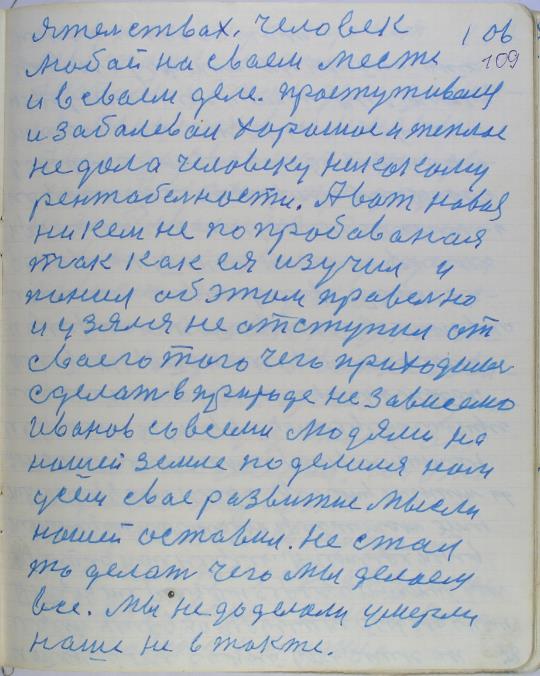 ятелствах. Человек 106
109
любой на своем месте
и в своем деле. простуживоля
и заболевал хорошое и теплое
не дала человеку никокому
рентобелности. А вот новая
ни кем не попробованая
так как ся изучил и
понил об этом правелно
и узяля не отступил от
своего того чего приходиля
сделат в природе не зависемо
Иванов со всеми людями на
нашей земле поделиля нам
усем свае развитие мысли
нашей оставил. Не стал
то делат чего мы делаем
все. Мы не доделали умерли
наше не в такте.